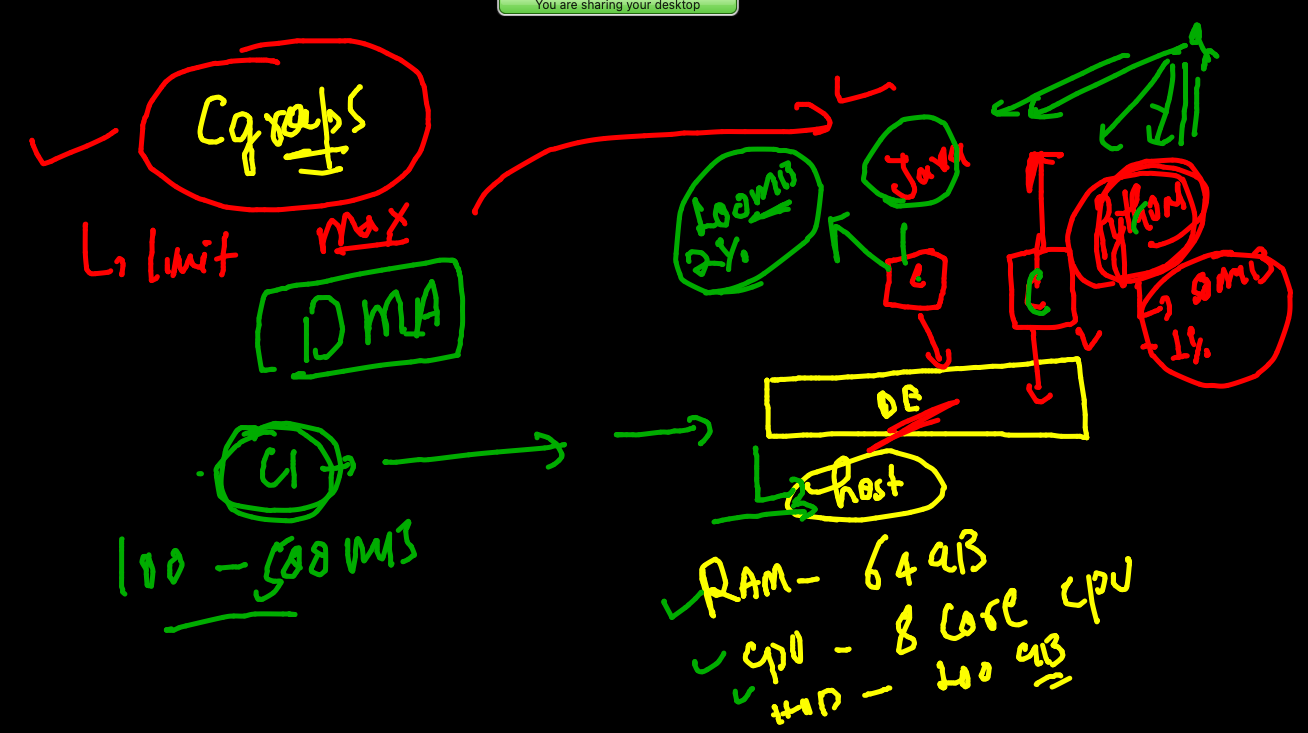 You are sharing your desktop
Cgroups
Limit max
DMA
C1
100 - 500 MB
Java
100MB
2%
C
Python
C
1%
DE
host
RAM - 64 GB
CPU - 8 Core CPU
HDD - 100 GB